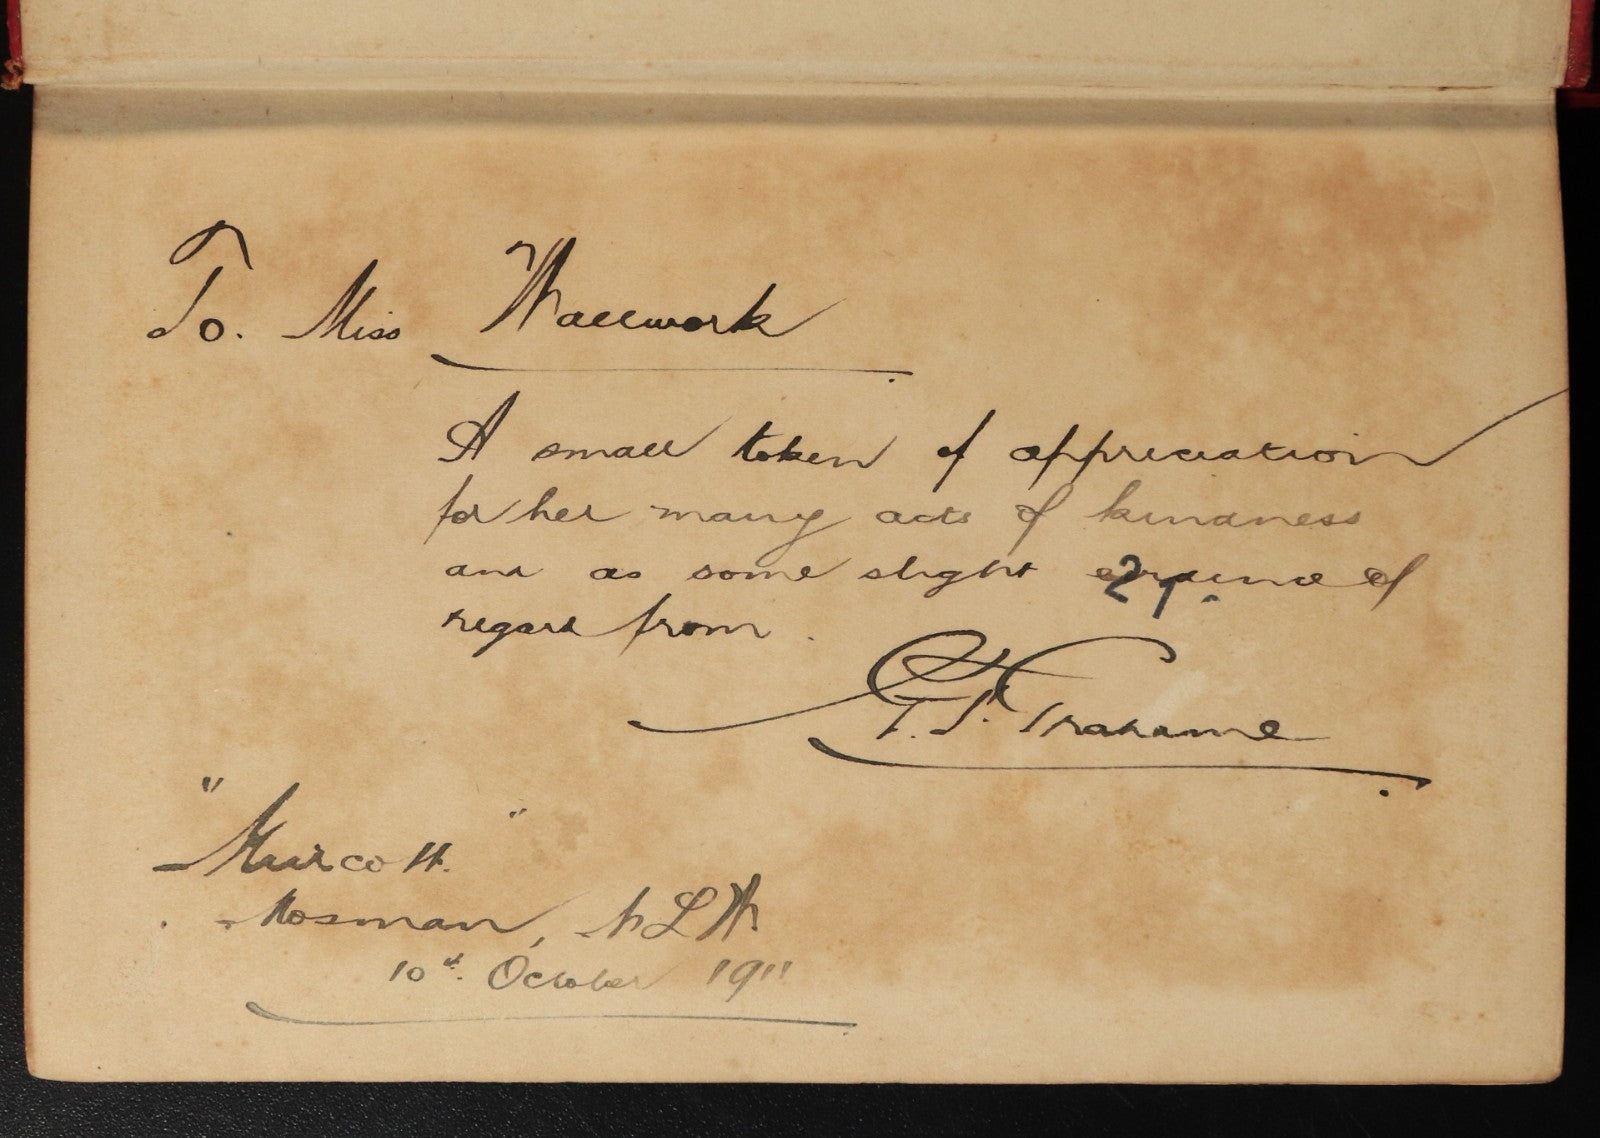 To. Miss Wallwork
A small token of appreciation
for her many acts of kindness
and as some slight evidence of
regard from.
2/-
G. T. S. Grahame
"Muircott."
Mosman, N S W
10th. October 1911